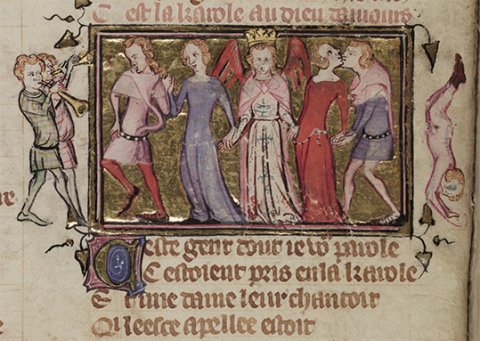 C est la karole au dieu damours
Ceste gent dont ie vo parole
C estoient pris en la karole
E t une dame leur chantoit
Qui leesce apellee estoit